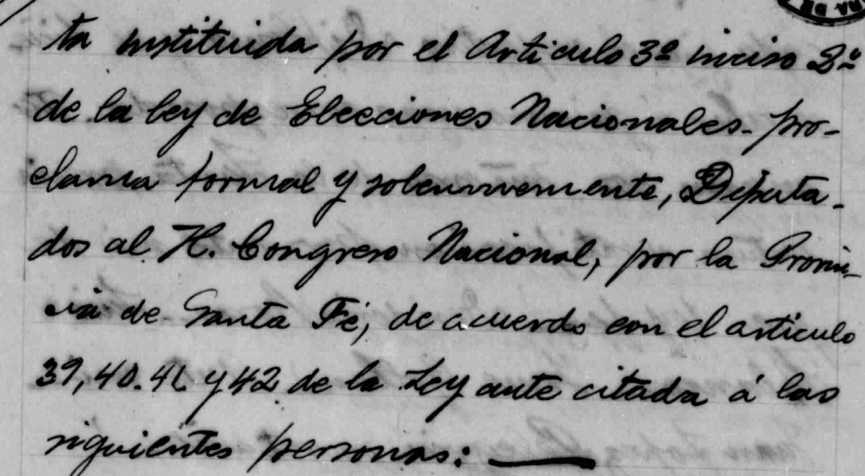 ta instituida por el Articulo 3º inciso 2º
de la ley de Elecciones Nacionales- pro-
clama formal y solemnemente, Diputa-
dos al H. Congreso Nacional, por la Provin-
cia de Santa Fé, de acuerdo con el articulo
39, 40. 41 y 42 de la Ley ante citada á las
siguientes personas: